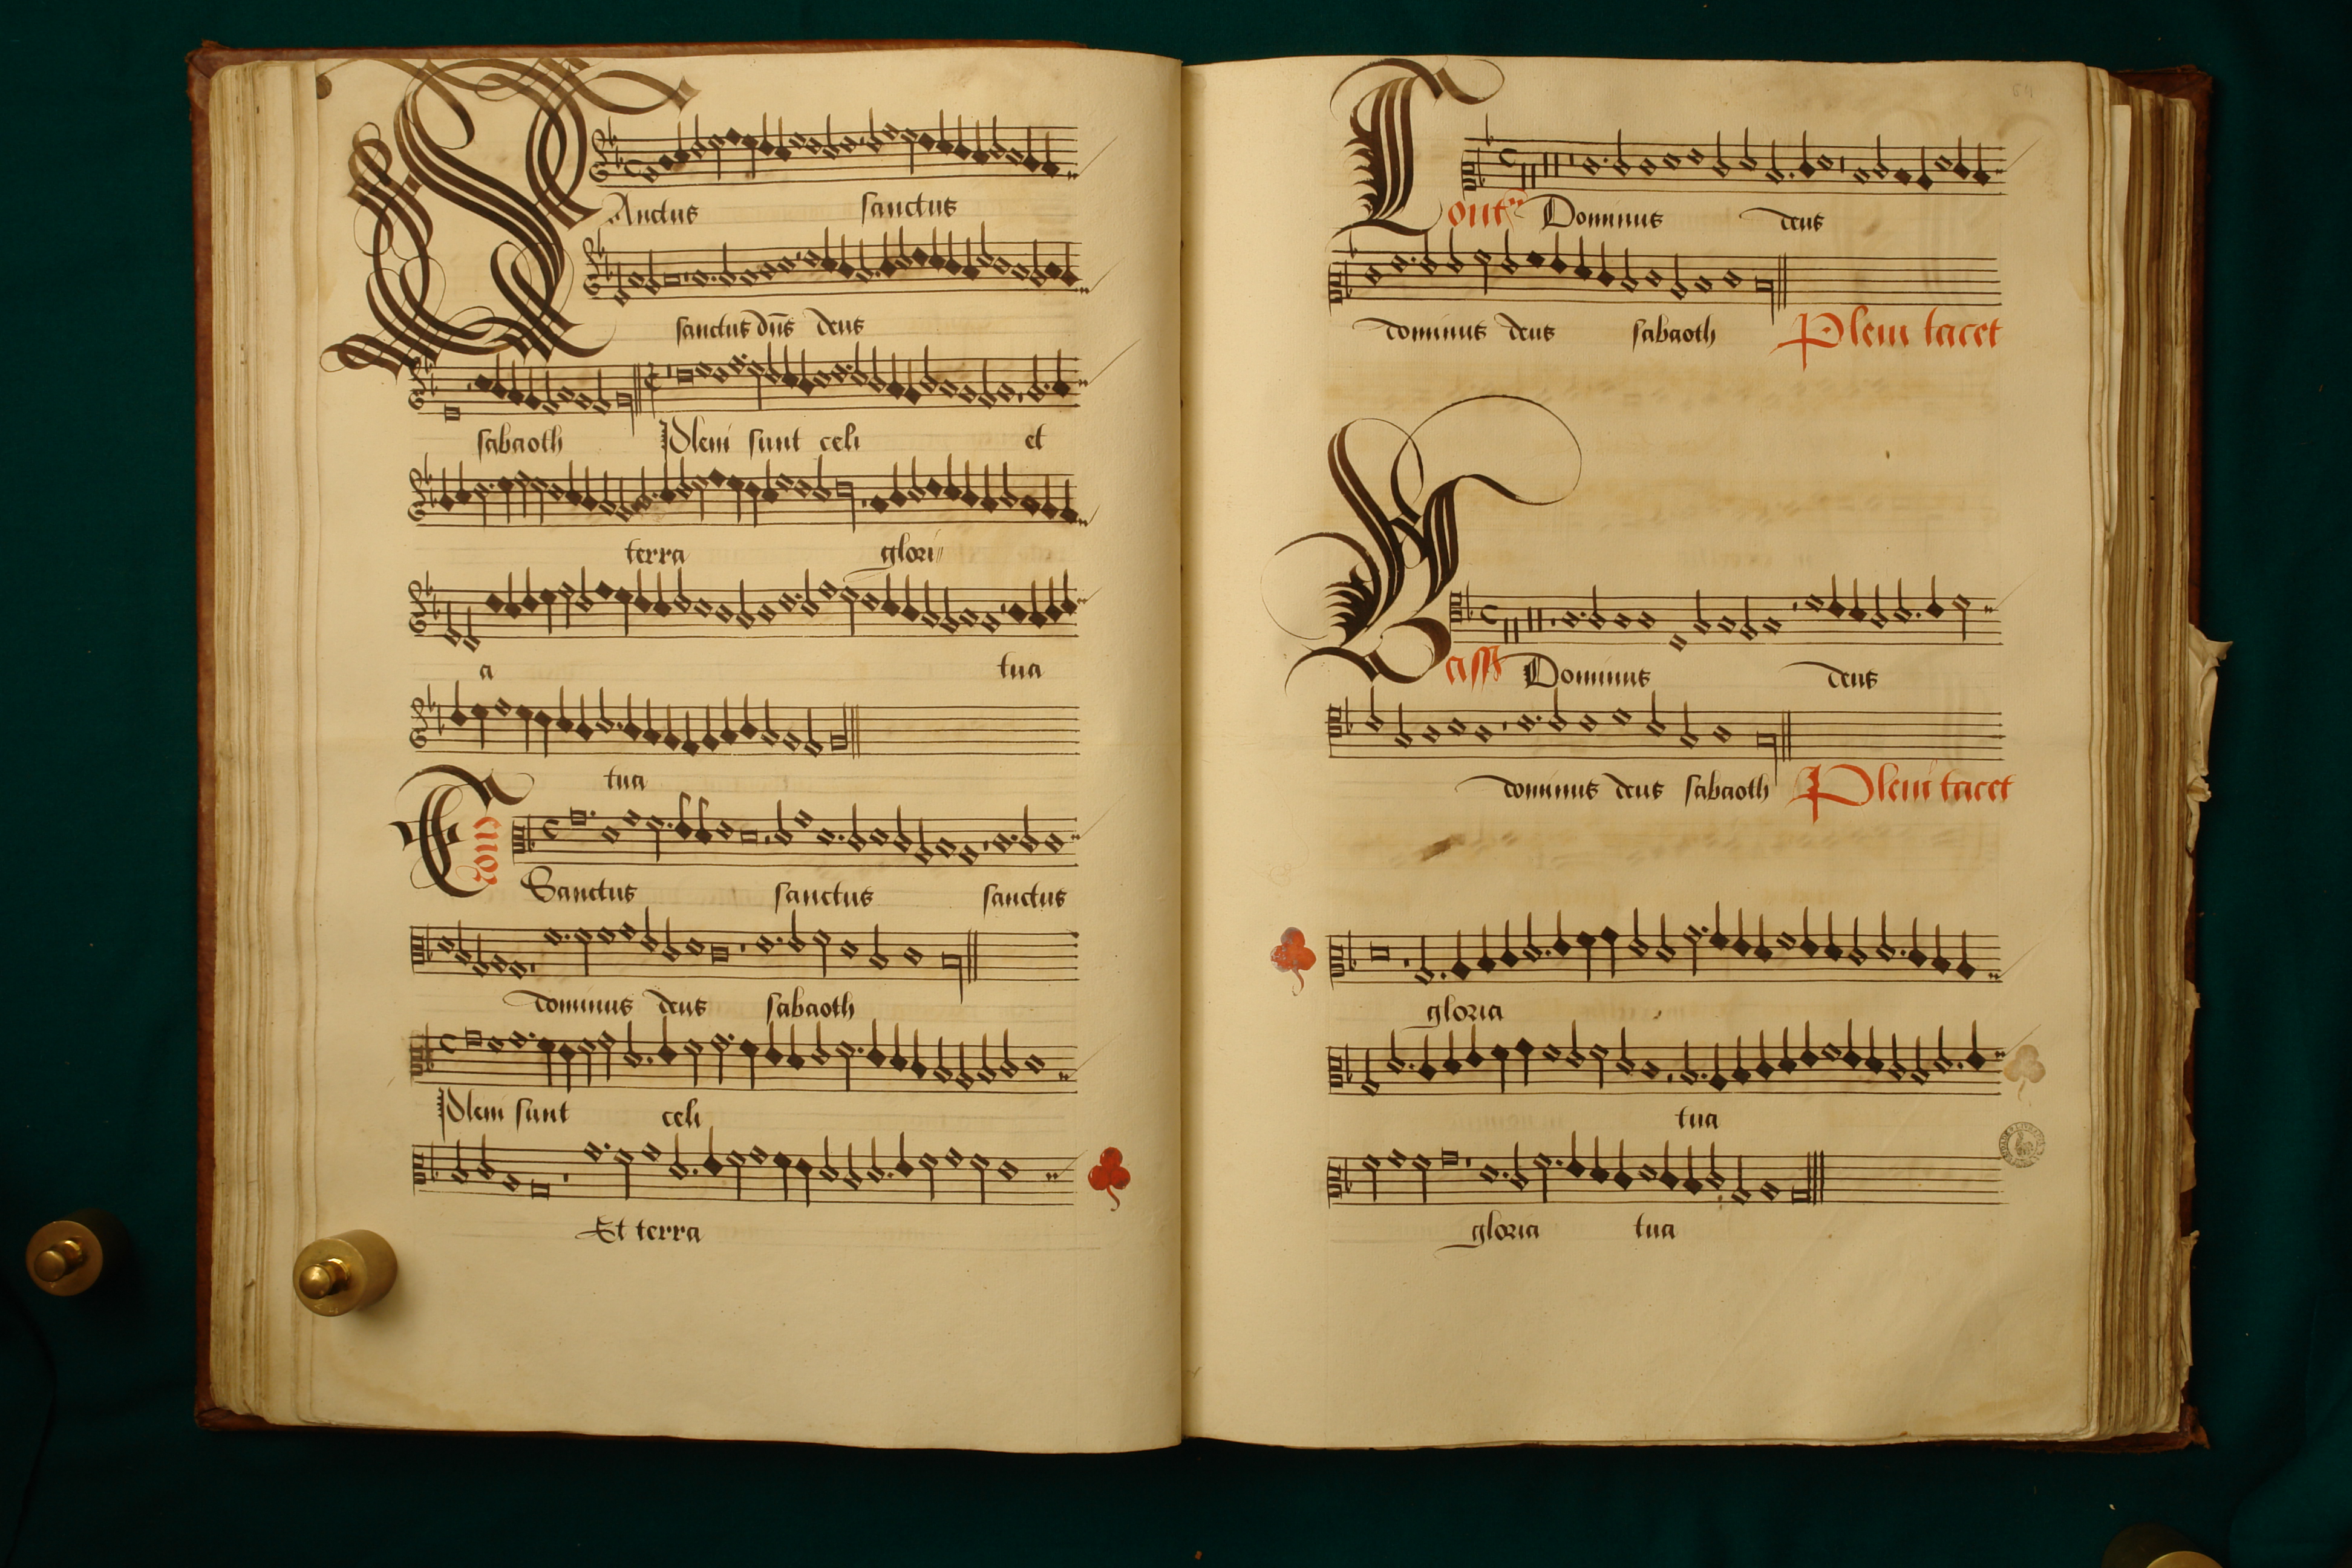 SAnctus sanctus
sanctus dn̄s deus
sabaoth Pleni sunt celi et
terra glori
a tua
tua
Tenor Sanctus sanctus sanctus
dominus deus sabaoth
Pleni sunt celi
Et terra
Dominus deus
dominus deus sabaoth Pleni tacet
Dominus deus
dominus deus sabaoth Pleni tacet
gloria
tua
gloria tua